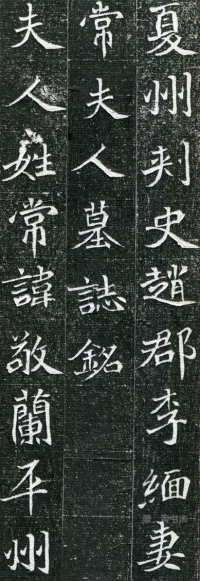 夏州刾史趙郡李緬妻
常夫人墓誌銘
夫人姓常諱敬蘭平州